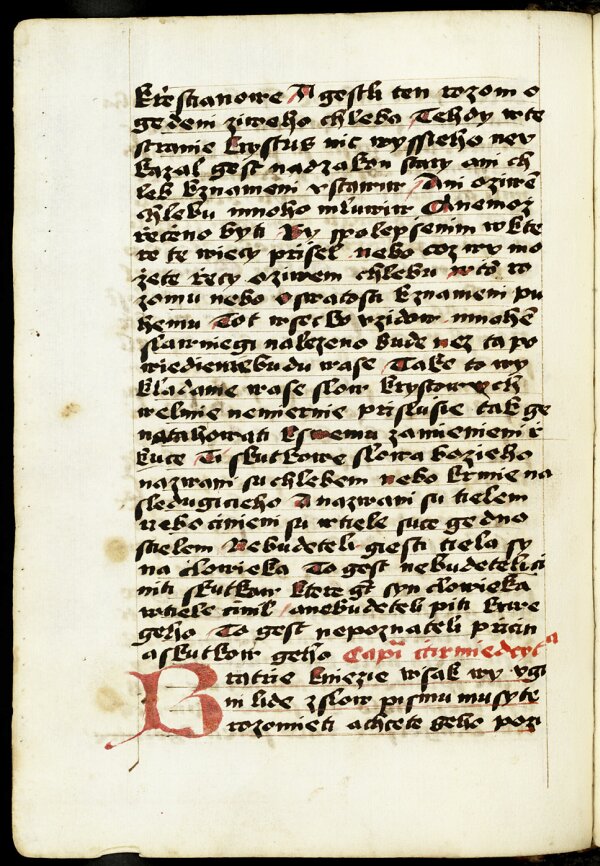 krzestianowe A gestli ten rozom o
gedem ziweho chleba Tehdy wte
stranie krystus nic wyssieho nev
kazal gest nadzakon stary ani ch
leb kznameni vstawiw Ani oziwe
chlebu mnoho mluwiw Anemoz
rzeczeno byti By spolepsenim wkte
re te wiecy prisel nebo coz wy mo
zete rzecy oziwem chlebu wto ro
zomu nebo oswatosti kznameni pu
hemu Tot wsecko vzidow mnohem
slawniegi nalezeno bude nez ta po
wiedieniebudu wase Take to wy
kladanie wase slow krystowych
welmie nemiernie prislusie tak ge
natahowati kswemu zamienieni r
kuce Ti skutkowe slowa bozieho
nazwani su chlebem nebo krmie na
sledugicieho A nazwani su tielem
nebo cinieni su wtiele suce gedno
stielem Nebudeteli giesti tiela sy
na clowieka To gest nebudeteli ci
niti skutkow ktere gt syn clowieka
wtiele cinil anebudeteli piti krwe
geho To gest nepoznateli pricin
a skutkow geho
Bratrie kniezie wsak wy vgi
ni lide zslow pismu musyte
rozomieti a chcete geho pozi